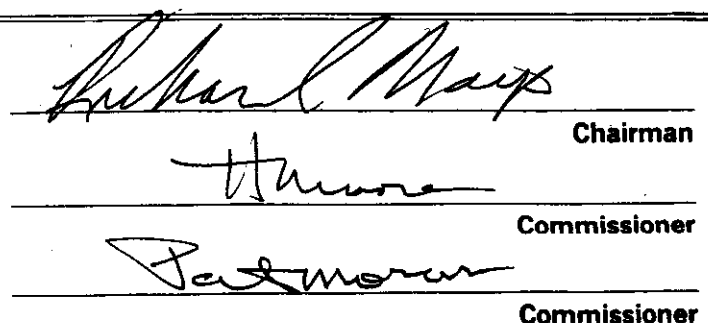 Richard Mays
Chairman
Commissioner
Pat Moran
Commissioner